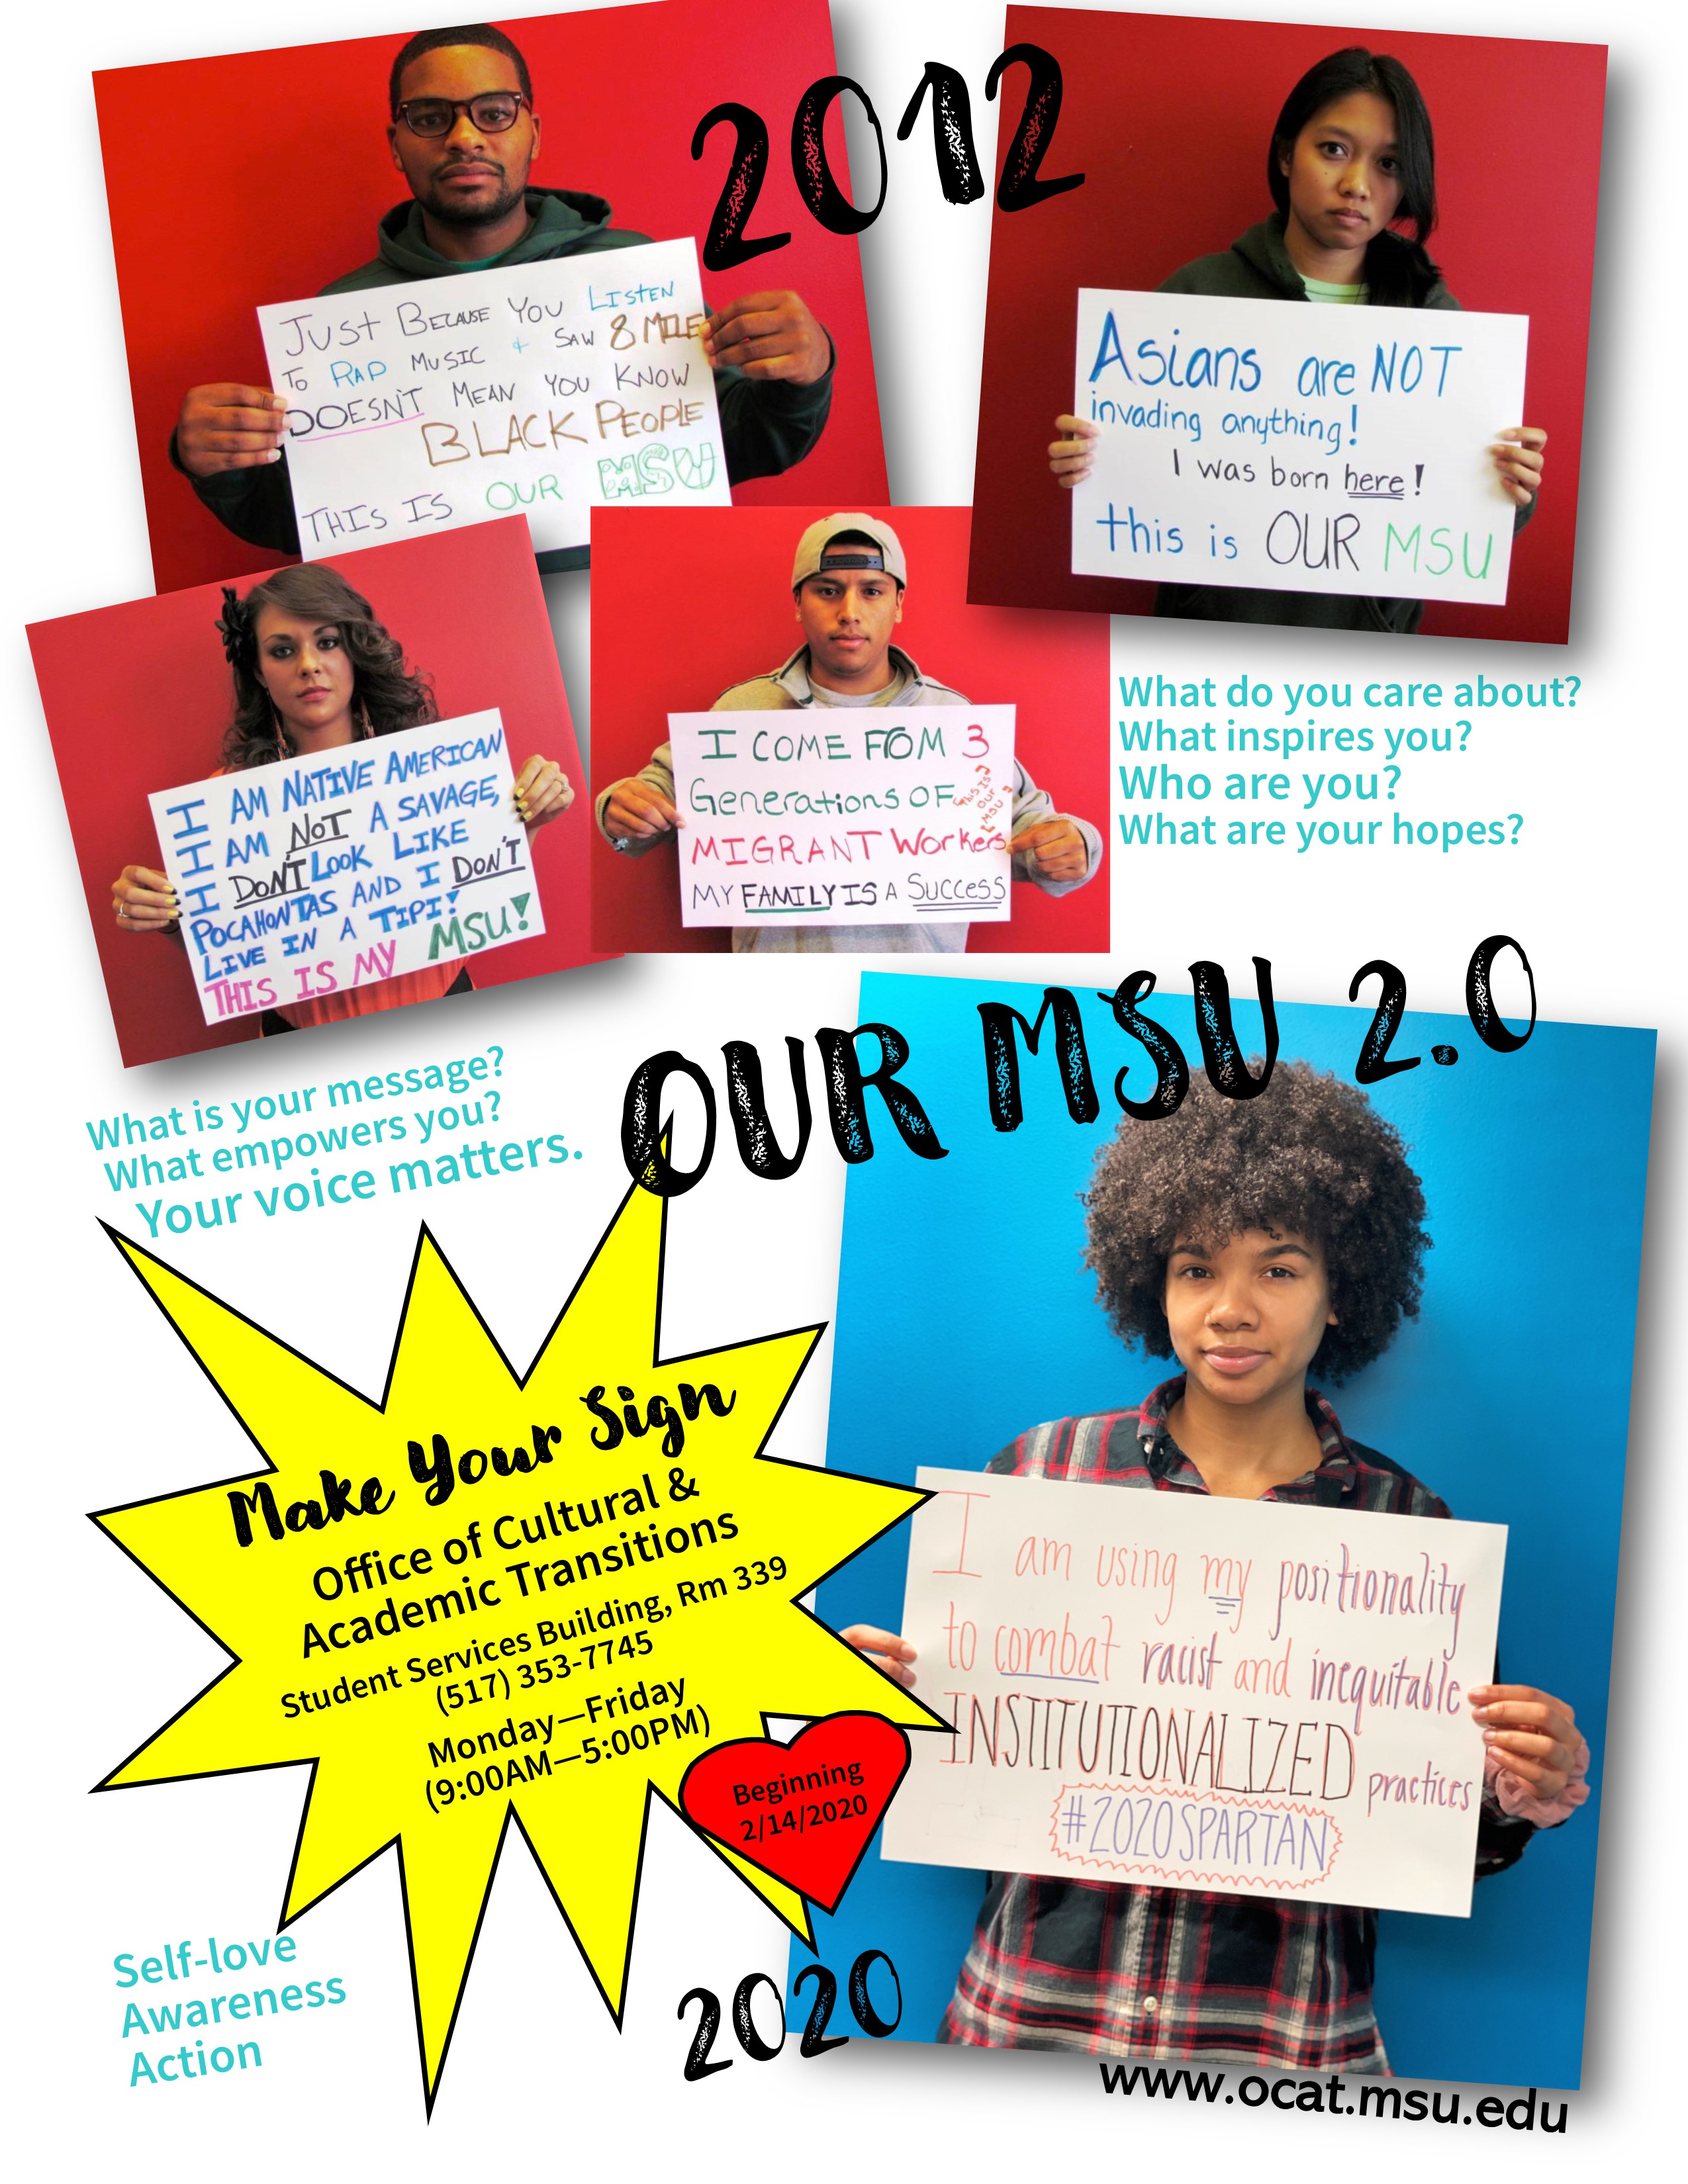 2012
JUST BECAUSE YOU LISTEN
TO RAP MUSIC & SAW 8 MILE
DOESN'T MEAN YOU KNOW
BLACK PEOPLE
THIS IS OUR MSU
Asians are NOT
invading anything!
I was born here!
this is OUR MSU
I AM NATIVE AMERICAN
I AM NOT A SAVAGE,
I DON'T LOOK LIKE
POCAHONTAS AND I DON'T
LIVE IN A TIPI!
THIS IS MY MSU!
I COME FROM 3
Generations OF
MIGRANT Workers
MY FAMILY IS A SUCCESS
THIS IS
OUR
MSU
What do you care about?
What inspires you?
Who are you?
What are your hopes?
OUR MSU 2.0
What is your message?
What empowers you?
Your voice matters.
Make Your Sign
Office of Cultural &
Academic Transitions
Student Services Building, Rm 339
(517) 353-7745
Monday—Friday
(9:00AM—5:00PM)
Beginning
2/14/2020
I am using my positionality
to combat racist and inequitable
INSTITUTIONALIZED practices
#2020SPARTAN
Self-love
Awareness
Action
2020
www.ocat.msu.edu